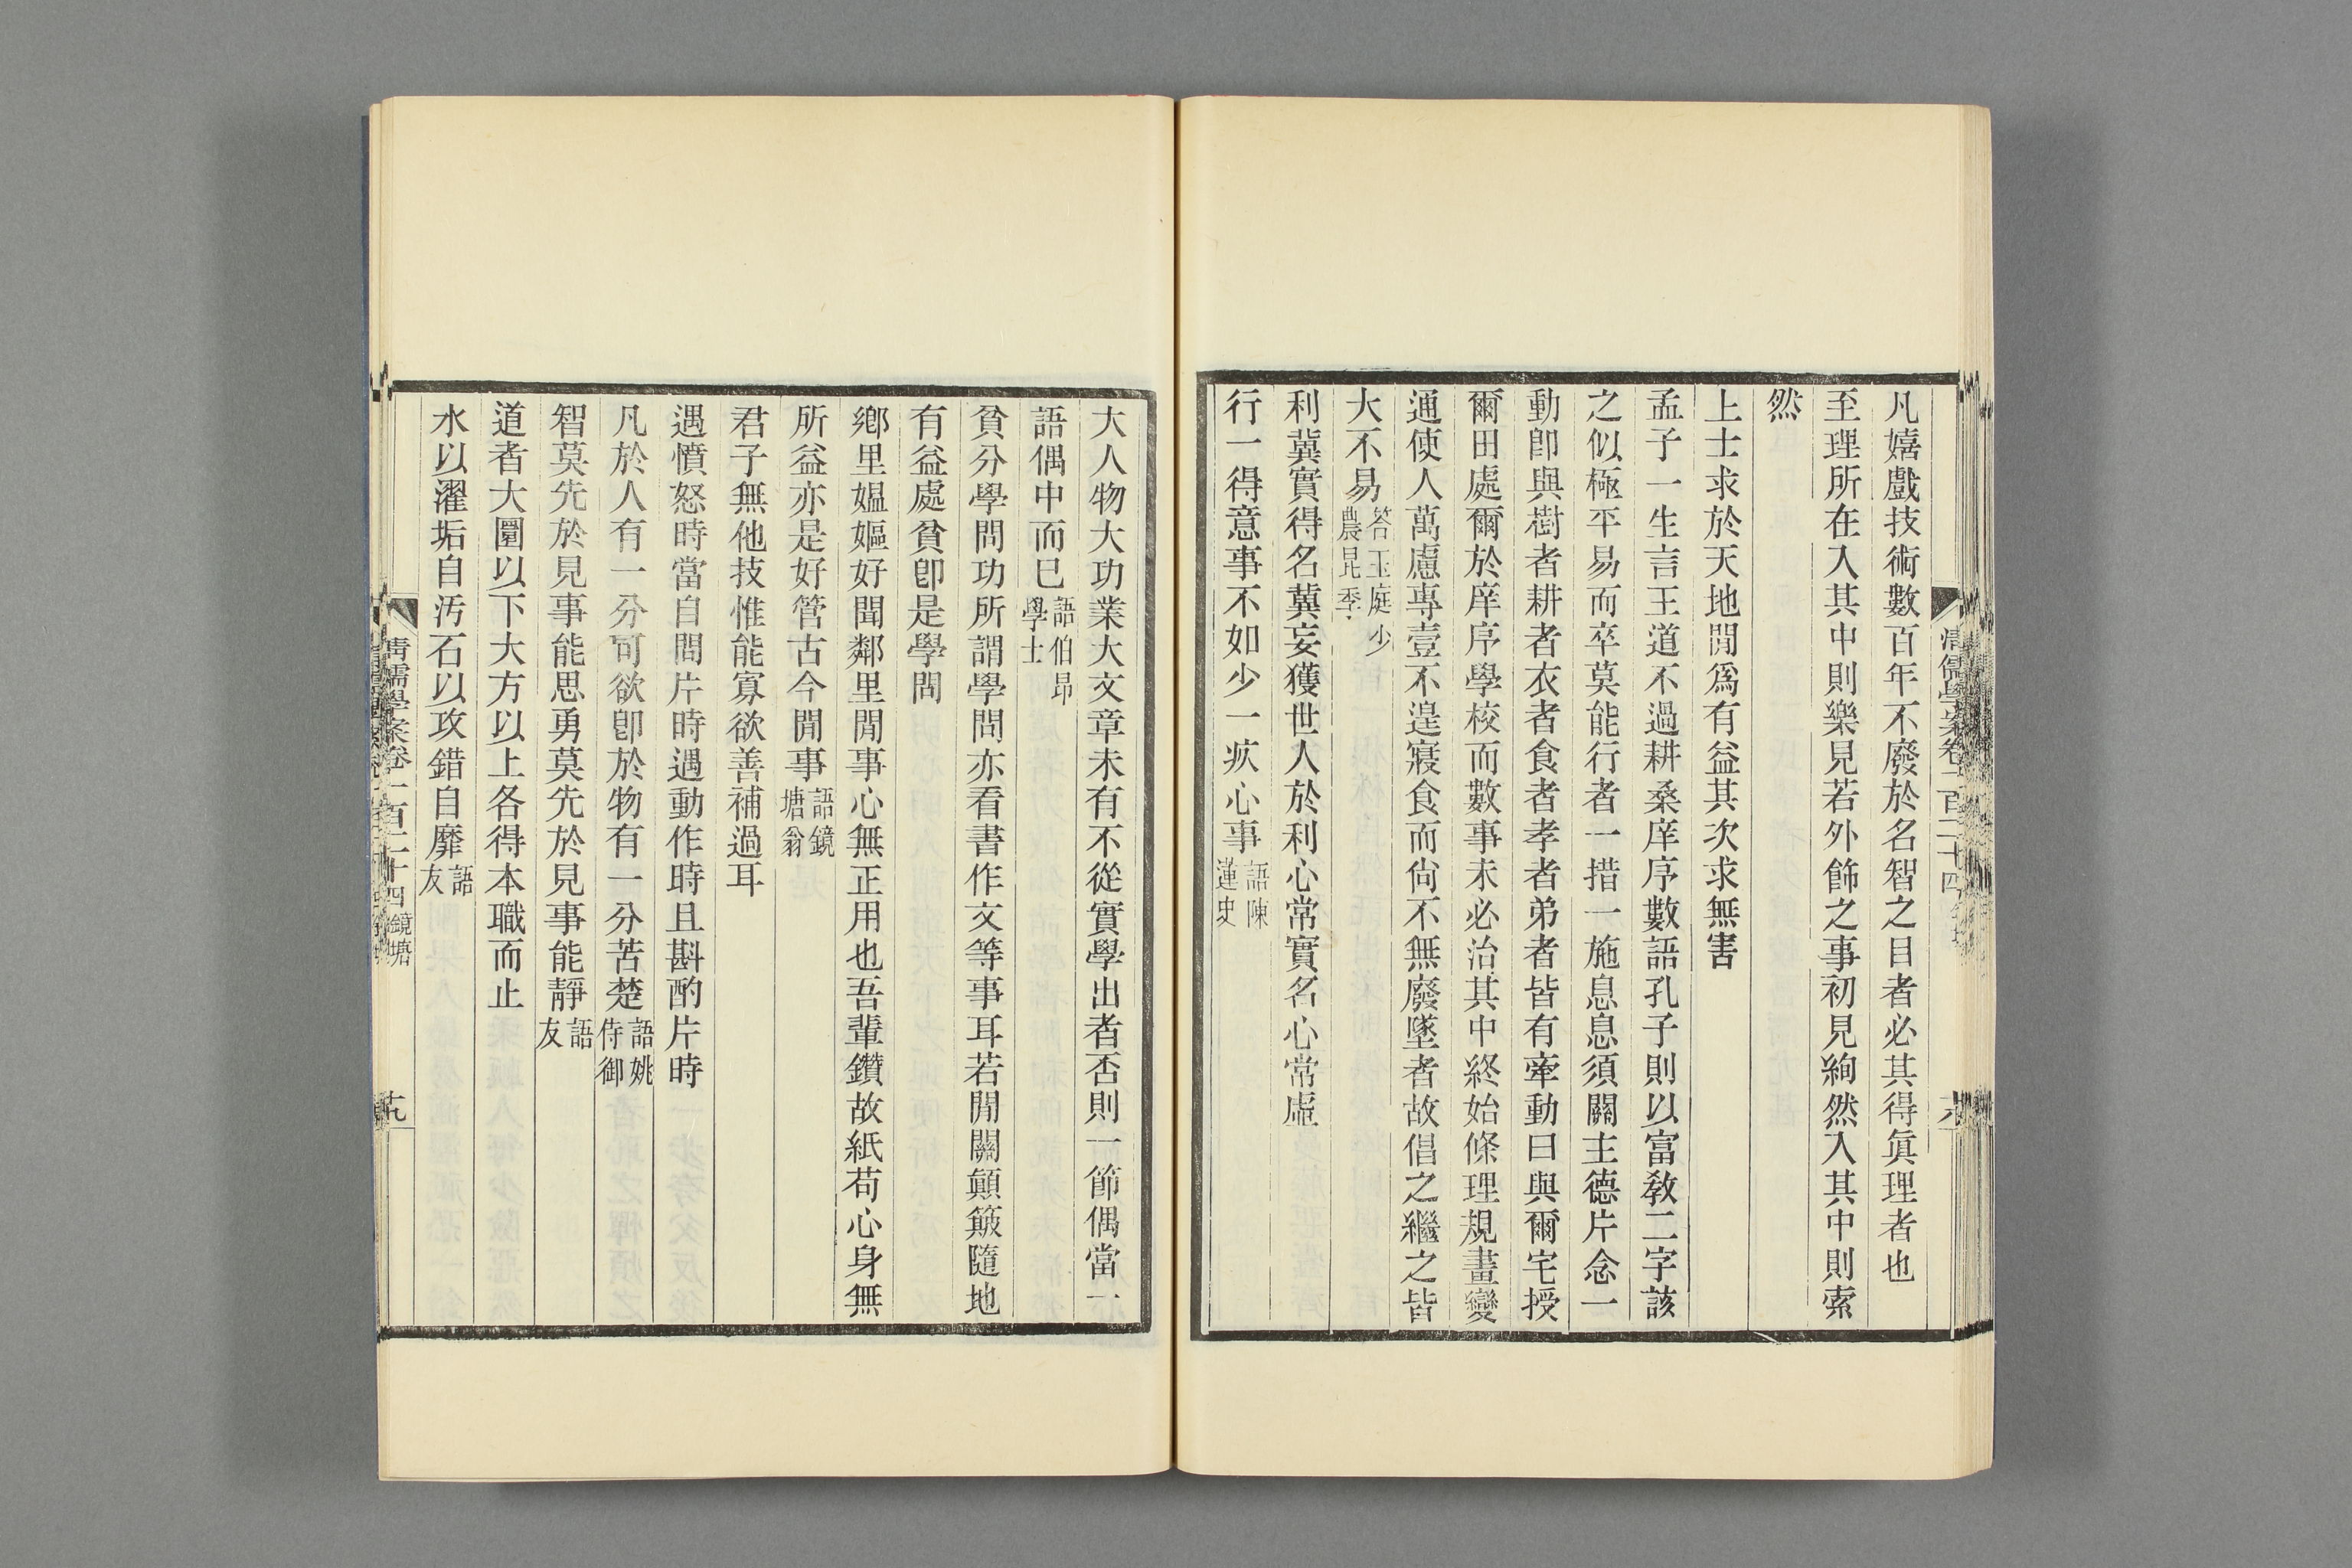 清儒學案卷二百二十四
凡嬉戲技術數百年不廢於名智之目者必其得眞理者也
至理所在入其中則樂見若外飾之事初見絢然入其中則索
然
上士求於天地閒爲有益其次求無害
孟子一生言王道不過耕桑庠序數語孔子則以富敎二字該
之似極平易而卒莫能行者一措一施息息須關主德片念一
動卽與樹者耕者衣者食者孝者弟者皆有牽動曰與爾宅授
爾田處爾於庠序學校而數事未必治其中終始條理規畫變
通使人萬慮專壹不遑寢食而尙不無廢墜者故倡之繼之皆
大不易答玉庭少農昆季
利冀實得名冀妄獲世人於利心常實名心常虛
行一得意事不如少一疚心事語陳蓮史
大人物大功業大文章未有不從實學出者否則一節偶當一
語偶中而已語伯昂學士
貧分學問功所謂學問亦看書作文等事耳若閒關顛簸隨地
有益處貧卽是學問
鄕里媼嫗好聞鄰里閒事心無正用也吾輩鑽故紙苟心身無
所益亦是好管古今閒事語鏡塘翁
君子無他技惟能寡欲善補過耳
遇憤怒時當自問片時遇動作時且斟酌片時
凡於人有一分可欲卽於物有一分苦楚語姚侍御
智莫先於見事能思勇莫先於見事能靜語友
道者大圍以下大方以上各得本職而止
水以濯垢自汚石以攻錯自靡語友
清儒學案卷二百二十四 鏡塘
十九